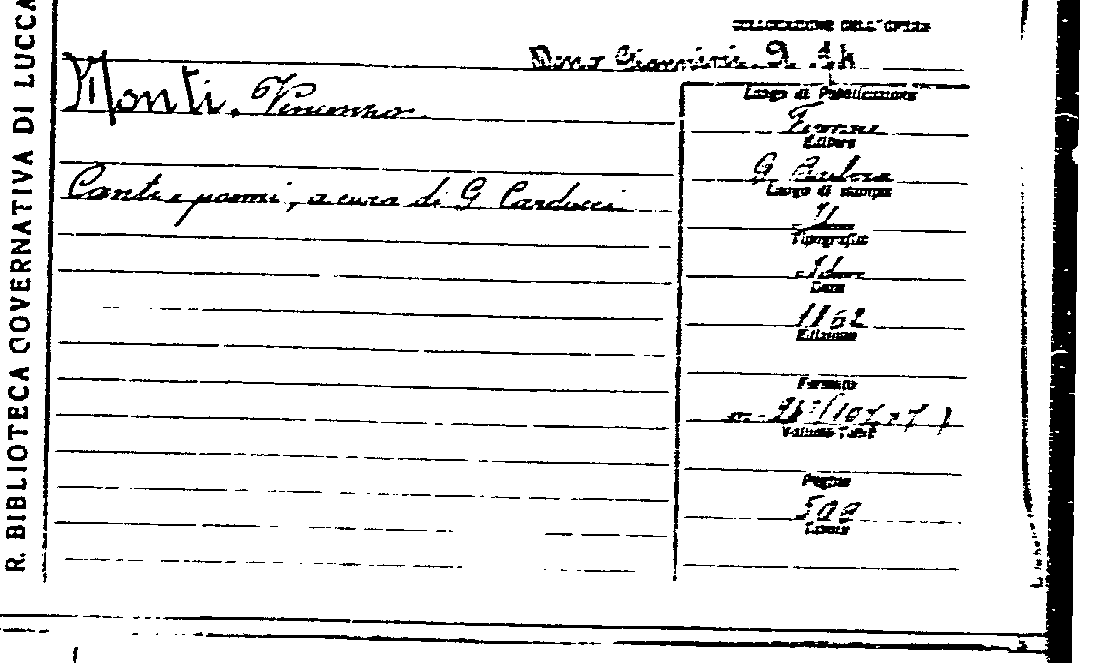 R. BIBLIOTECA GOVERNATIVA DI LUCCA
COLLOCAZIONE DELL'OPERA
Dono Giannini. 9.
Monti, Vincenzo.
Canti e poemi, a cura di G Carducci
Luogo di Pubblicazione
Firenze
Editore
G. Barbera
Luogo di stampa
Tipografia
Data
1862
Edizione
Formato
Volume
Pagine